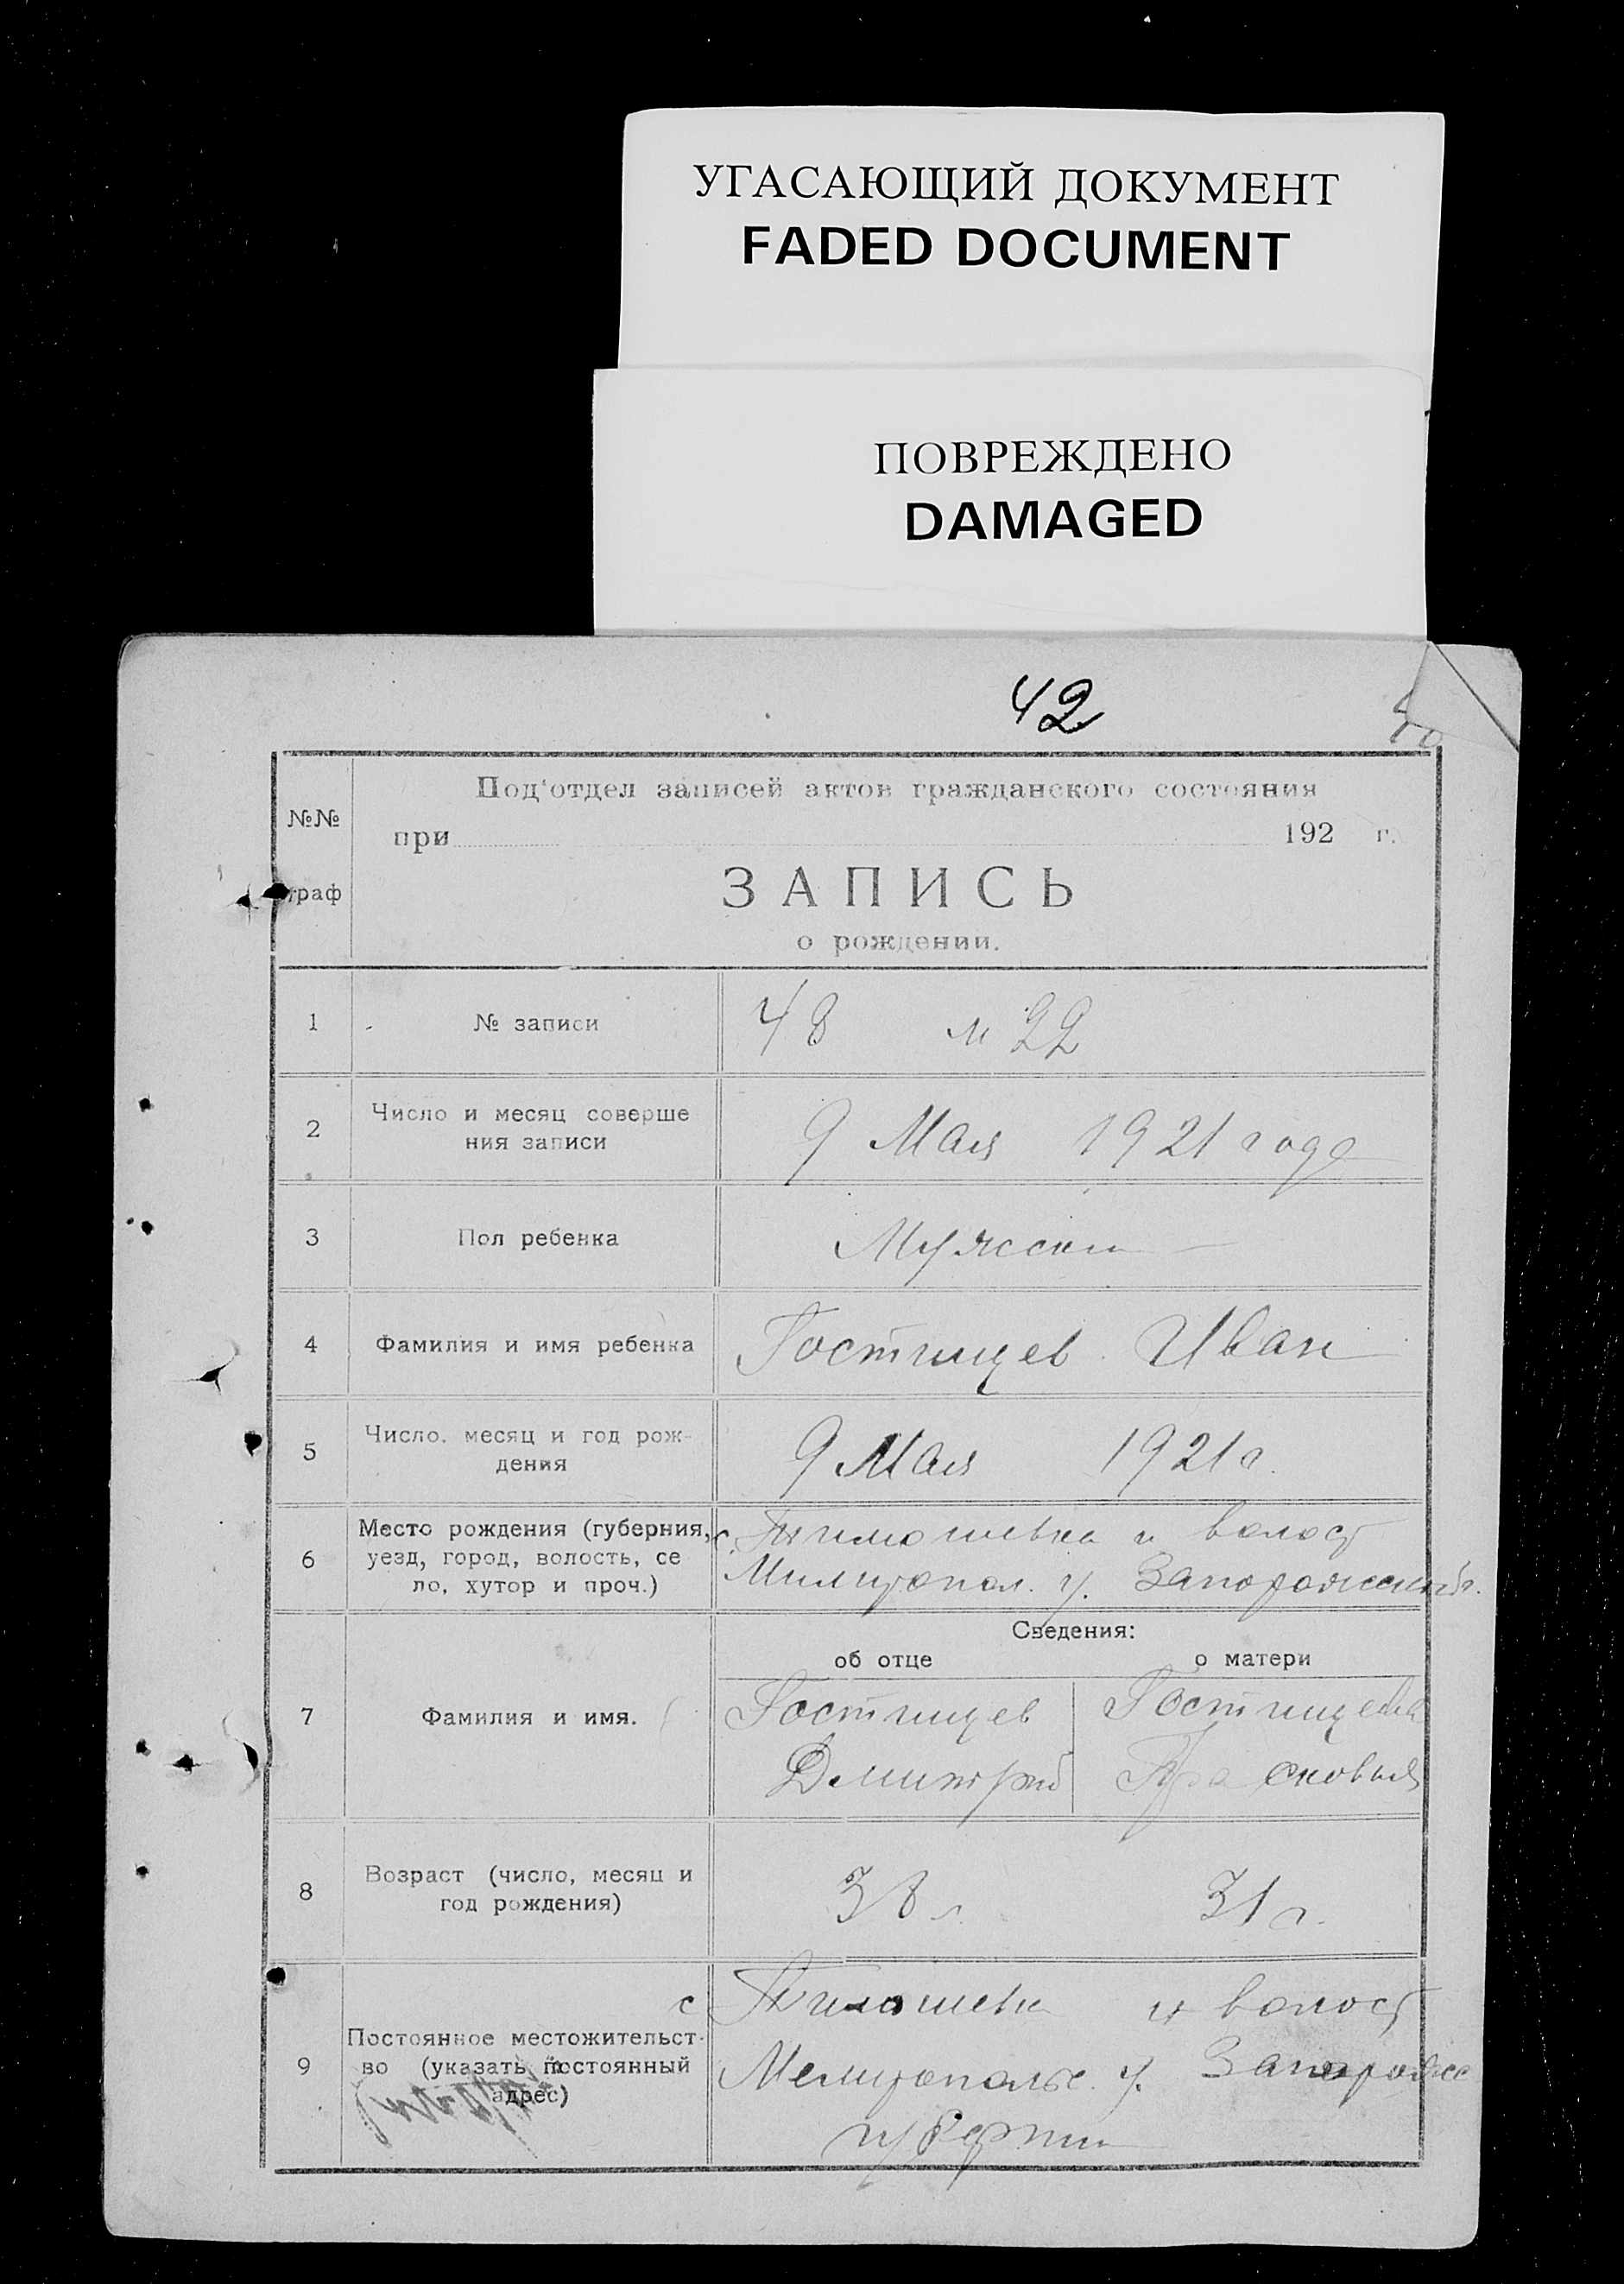 УГАСАЮЩИЙ ДОКУМЕНТ
FADED DOCUMENT
ПОВРЕЖДЕНО
DAMAGED
42
№№
граф
Под'отдел записей актов гражданского состояния
при 192 г.
ЗАПИСЬ
о рождении.
1 № записи 48 м 22
2 Число и месяц соверше
ния записи
9 Мая 1921 года
3 Пол ребенка Мужскои
4 Фамилия и имя ребенка Гостищев Иван
5 Число. месяц и год рож-
дения
9 Мая 1921 г.
6 Место рождения (губерния,
уезд, город, волость, се
ло, хутор и проч.)
с. Тимошевка и волост
Милитопол. у. Запорожский г.
Сведения:
об отце о матери
7 Фамилия и имя.
Гостищев Гостищева
Дмитрий Прасковья
8 Возраст (число, месяц и
год рождения)
38 л. 31 г.
9 Постоянное местожительст-
во (указать постоянный
адрес)
с Тимошевк и волост
Мелитопольс. у. Запорожс
губерни